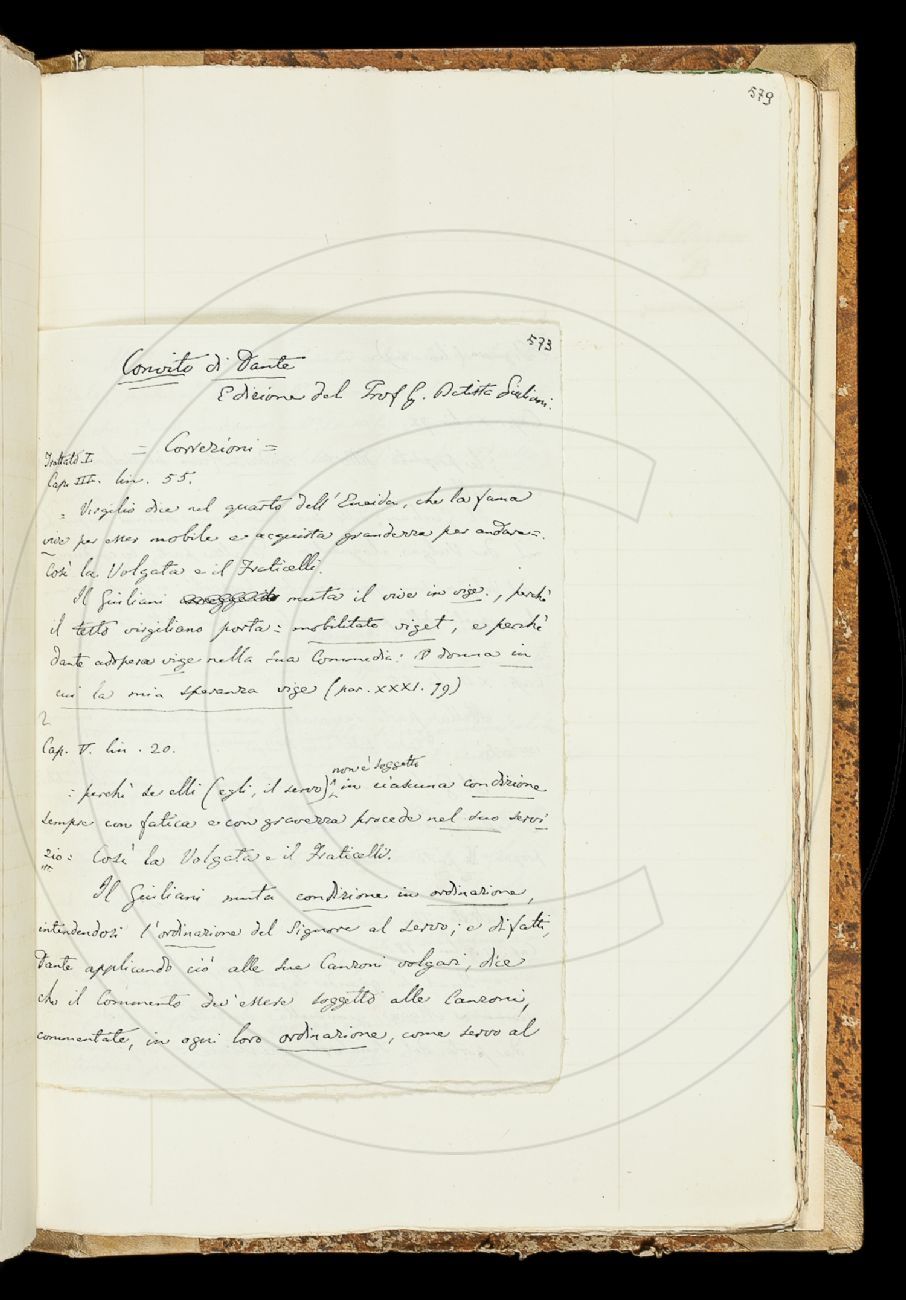 579
573
Convito di Dante
Edizione del Prof G. Batista Giuliani.
= Correzioni =
Trattato I.
Cap. III. lin. 55.
= Virgilio dice nel quarto dell'Eneida, che la fama
vive per esser mobile e acquista grandezza per andare =.
Così la Volgata e il Fraticelli.
Il Giuliani muta il vive in vige, perchè
il testo virgiliano porta: mobilitate viget, e perchè
Dante adopera vige nella sua Commedia: O donna in
cui la mia speranza vige (par. XXXI. 79)
2
Cap. V. lin. 20.
non è soggetto
= perchè se elli (egli, il servo) in ciascuna condizione
sempre con fatica e con gravezza procede nel suo servi
zio = Così la Volgata e il Fraticelli.
Il Giuliani muta condizione in ordinazione,
intendendosi l'ordinazione del Signore al servo; e difatti,
Dante applicando ciò alle sue Canzoni volgari, dice
che il Commento dev'essere soggetto alle Canzoni,
commentate, in ogni loro ordinazione, come servo al